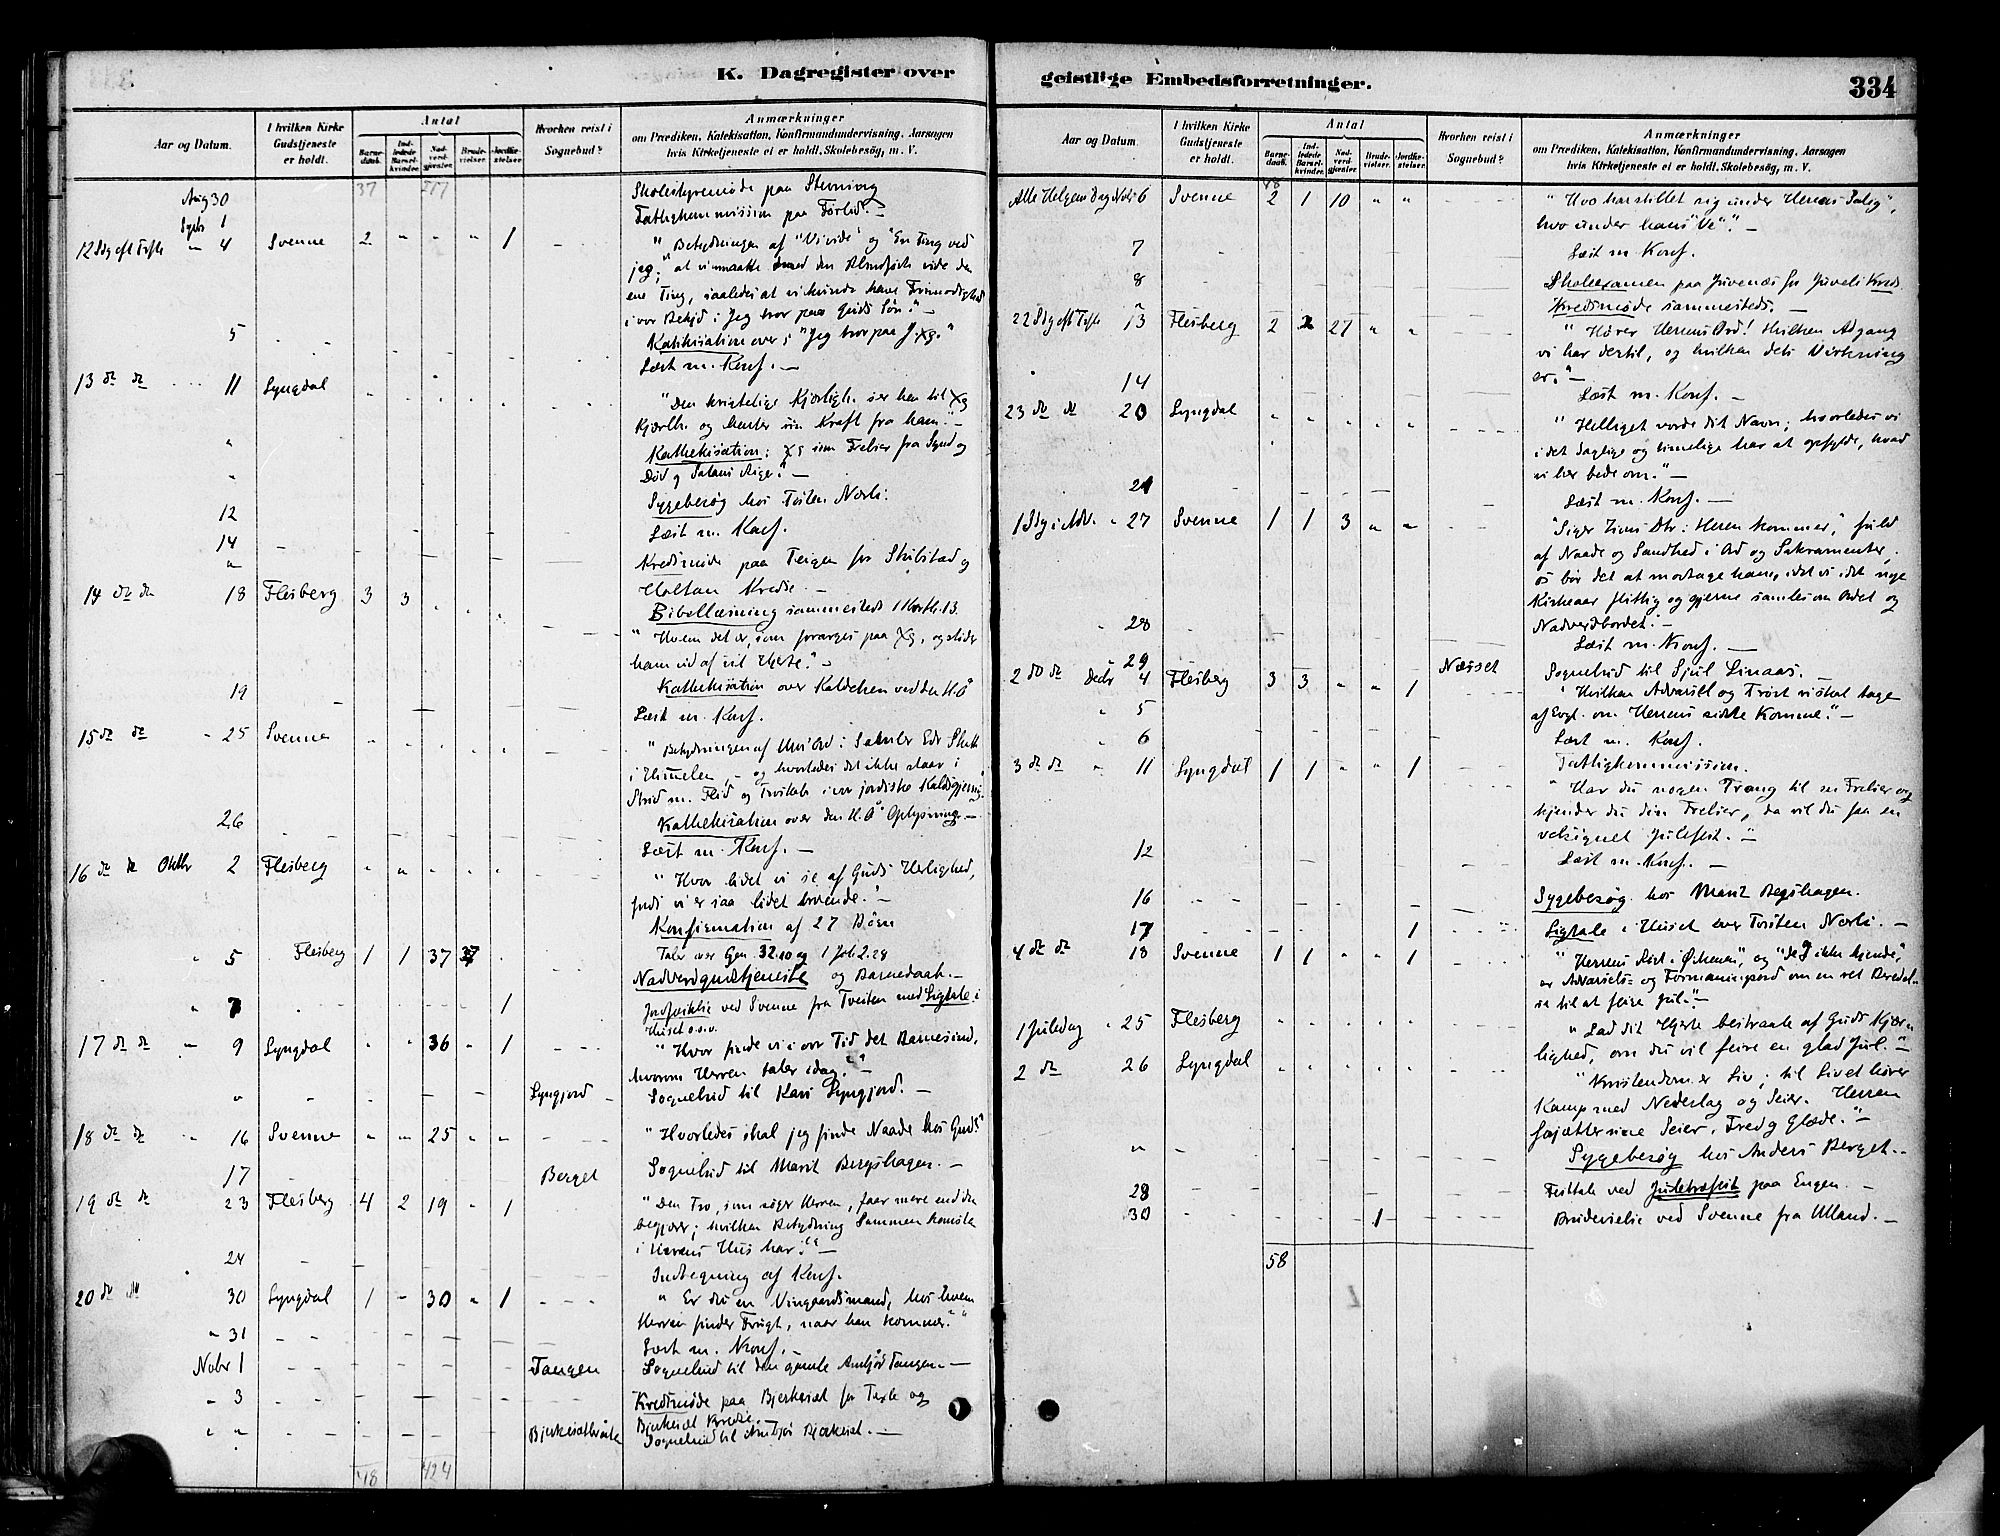 K. Dagregister over
geistlige Embedsforretninger.
334
Aar og Datum.
I hvilken Kirke Gudstjeneste er holdt.
Antal
Barnedaab.
Indledede Barselkvinder.
Nadverdgjester.
Brudevielser.
Jordfæstelser.
Hvorhen reist i Sognebud?
Anmærkninger
om Prædiken, Katekisation, Konfirmandundervisning, Aarsagen
hvis Kirketjeneste ei er holdt, Skolebesög, m. V.
37 217
Aug 30 Skolestyremøde paa Stevning
Septr 1 Fattigkommission paa Førlid. —
12 Sdg eft Trefh " 4 Svenne 2 " " " 1 " Betydningen af "Vi vide" og "En Ting ved
jeg;" at vi maatte med den Blindfødte vide den
ene Ting, saaledes at vi kunde have Frimodighed
i vor Bekjd: Jeg tror paa Guds Søn." —
5 Katekisation over: "Jeg tror paa J Xs."
Læst m. Konf. —
13 do do 11 Lyngdal "Den kristelige Kjærligh. ser hen til Xs
Kjærlh. og henter sin Kraft fra ham." —
" Kathekisation: Xs som Frelser fra Synd og
Død og Satans Rige." —
" Sygebesøg hos Tosten Nærli.
12 Læst m. Konf.
14 Kredsmøde paa Teigen for Skibstad og
" Holtan Kredse. —
14 do do 18 Flesberg 3 3 Bibellæsning sammesteds 1 Korth. 13.
"Hvem det er, som forarges paa Xs, og støder
ham ud af sit Hjerte." —
Kathekisation over Kaldelsen ved den H. Å
19 Læst m. Konf.
15 do do " 25 Svenne "Betydningen af Hans Ord: Samler Eder Skatte
i Himelen, — og hvorledes det ikke staar i
Strid m. Flid og Troskab i vor jordiske Kaldsgjerning."
Kathekisation over den H. Å Oplysning. —
26 Læst m. Konf. —
16 do do Oktbr 2 Flesberg "Hvor lidet vi se af Guds Herlighed,
fordi vi er saa lidet troende." —
Konfirmation af 27 Børn
" 5 Flesberg 1 1 37 Taler over Gen. 32.10 og 1 Joh. 2.28
Nadverdgudstjeneste og Barnedaab. —
" 7 1 Jordfæstelse ved Svenne fra Tveiten med Ligtale i
Huset o.s.v.
17 do do " 9 Lyngdal " " 36 " 1 "Hvor finde vi i vor Tid det Barnesind,
hvorom Herren taler idag?" —
" Lyngjord Sognebud til Kari Lyngjord. —
18 do do " 16 Svenne " " 25 " " "Hvorledes skal jeg finde Naade hos Gud?"
17 Berget Sognebud til Marit Bergshagen. —
19 do do " 23 Flesberg 4 2 19 " 1 "Den Tro, som søger Herren, faar mere end den
begjærer; hvilken Betydning Sammenkomster
i Herrens Hus har." —
24 Indtegning af Konf.
20 do do 30 Lyngdal 1 " 30 " 1 "Er du en Vingaardsmand, hos hvem
Herren finder Frugt, naar han kommer."
" 31 Læst m. Konf. —
Nobr 1 Tangen Sognebud til den gamle Ambjød Tangen. —
" 3 Kredsmøde paa Bjerkesæt for Tusle og
Bjerkesæt Kredse. —
" " Sognebud til Ambjør Bjerkesæt. —
48 424
Aar og Datum.
I hvilken Kirke Gudstjeneste er holdt.
Antal
Barnedaab.
Indledede Barselkvinder.
Nadverdgjester.
Brudevielser.
Jordfæstelser.
Hvorhen reist i Sognebud?
Anmærkninger
om Prædiken, Katekisation, Konfirmandundervisning, Aarsagen
hvis Kirketjeneste ei er holdt, Skolebesög, m. V.
48
Alle Helgens Dag Nobr 6 Svenne 2 1 10 " " "Hvo har stillet sig under Herrens Salig",
hvo under hans "Ve". —
7 Læst m. Konf.
8 Skoleexamen paa Juvenes for Juveli Kreds.
Kredsmøde sammesteds.
22 Sdg eft Trefh " 13 Flesberg 2 2 27 " " "Hører Herrens Ord! Hvilken Adgang
vi har dertil, og hvilken dets Virkning
er." —
14 Læst m. Konf. —
23 do do 20 Lyngdal "Helliget vorde dit Navn; hvorledes vi
i det daglige og timelige har at opfylde, hvad
vi her bede om." —
21 Læst m. Konf. —
1 Sdg i Adv. " 27 Svenne 1 1 3 " " "Siger Zions Dtr: Herren kommer", fuld
af Naade og Sandhed i Ord og Sakramenter.
os bør det at modtage ham, idet vi i det nye
Kirkeaar flittig og gjerne samles om Ordet og
Nadverdbordet. —
" 28 Læst m. Konf. —
" 29 Næsset Sognebud til Sjul Linaas. —
2 do do Decbr 4 Flesberg 3 3 " " 1 "Hvilken Advarsel og Trøst vi skal tage
af Evgl. om Herrens sidste Komme." —
" 5 Læst m. Konf.
" 6 Fattigkommission.
3 do do " 11 Lyngdal 1 1 " " 1 "Har du nogen Trang til en Frelser og
kjender du din Frelser, da vil du faa en
velsignet Julefest." —
12 Læst m. Konf. —
16 Sygebesøg hos Marit Bergshagen.
17 1 Ligtale i Huset over Tosten Nærli. —
4 do do 18 Svenne 1 1 " " 1 "Herrens Røst i Ørkenen", og "de I ikke kjende",
er Advarsels- og Formaningsord om en ret Beredel-
se til at feire Jul." —
1 Juledag " 25 Flesberg "Lad dit Hjerte bestraale af Guds Kjær-
lighed, om du vil feire en glad Jul." —
2 do 26 Lyngdal "Kristendom er Liv; til Livet hører
Kamp med Nederlag og Seier. Herren
skjætter sine Seier, Fred og Glæde." —
" Sygebesøg hos Anders Berget. —
28 Festtale ved Juletræfest paa Engen. —
30 1 Brudevielse ved Svenne fra Ulland. —
58